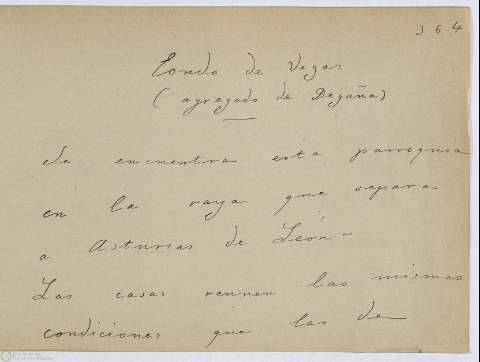 364
Tondo de Vegas
(agregado de Degaña)
Se encuentra esta parroquia
en la raya que separa
a Asturias de León-
Las casas reunen las mismas
condiciones que las de